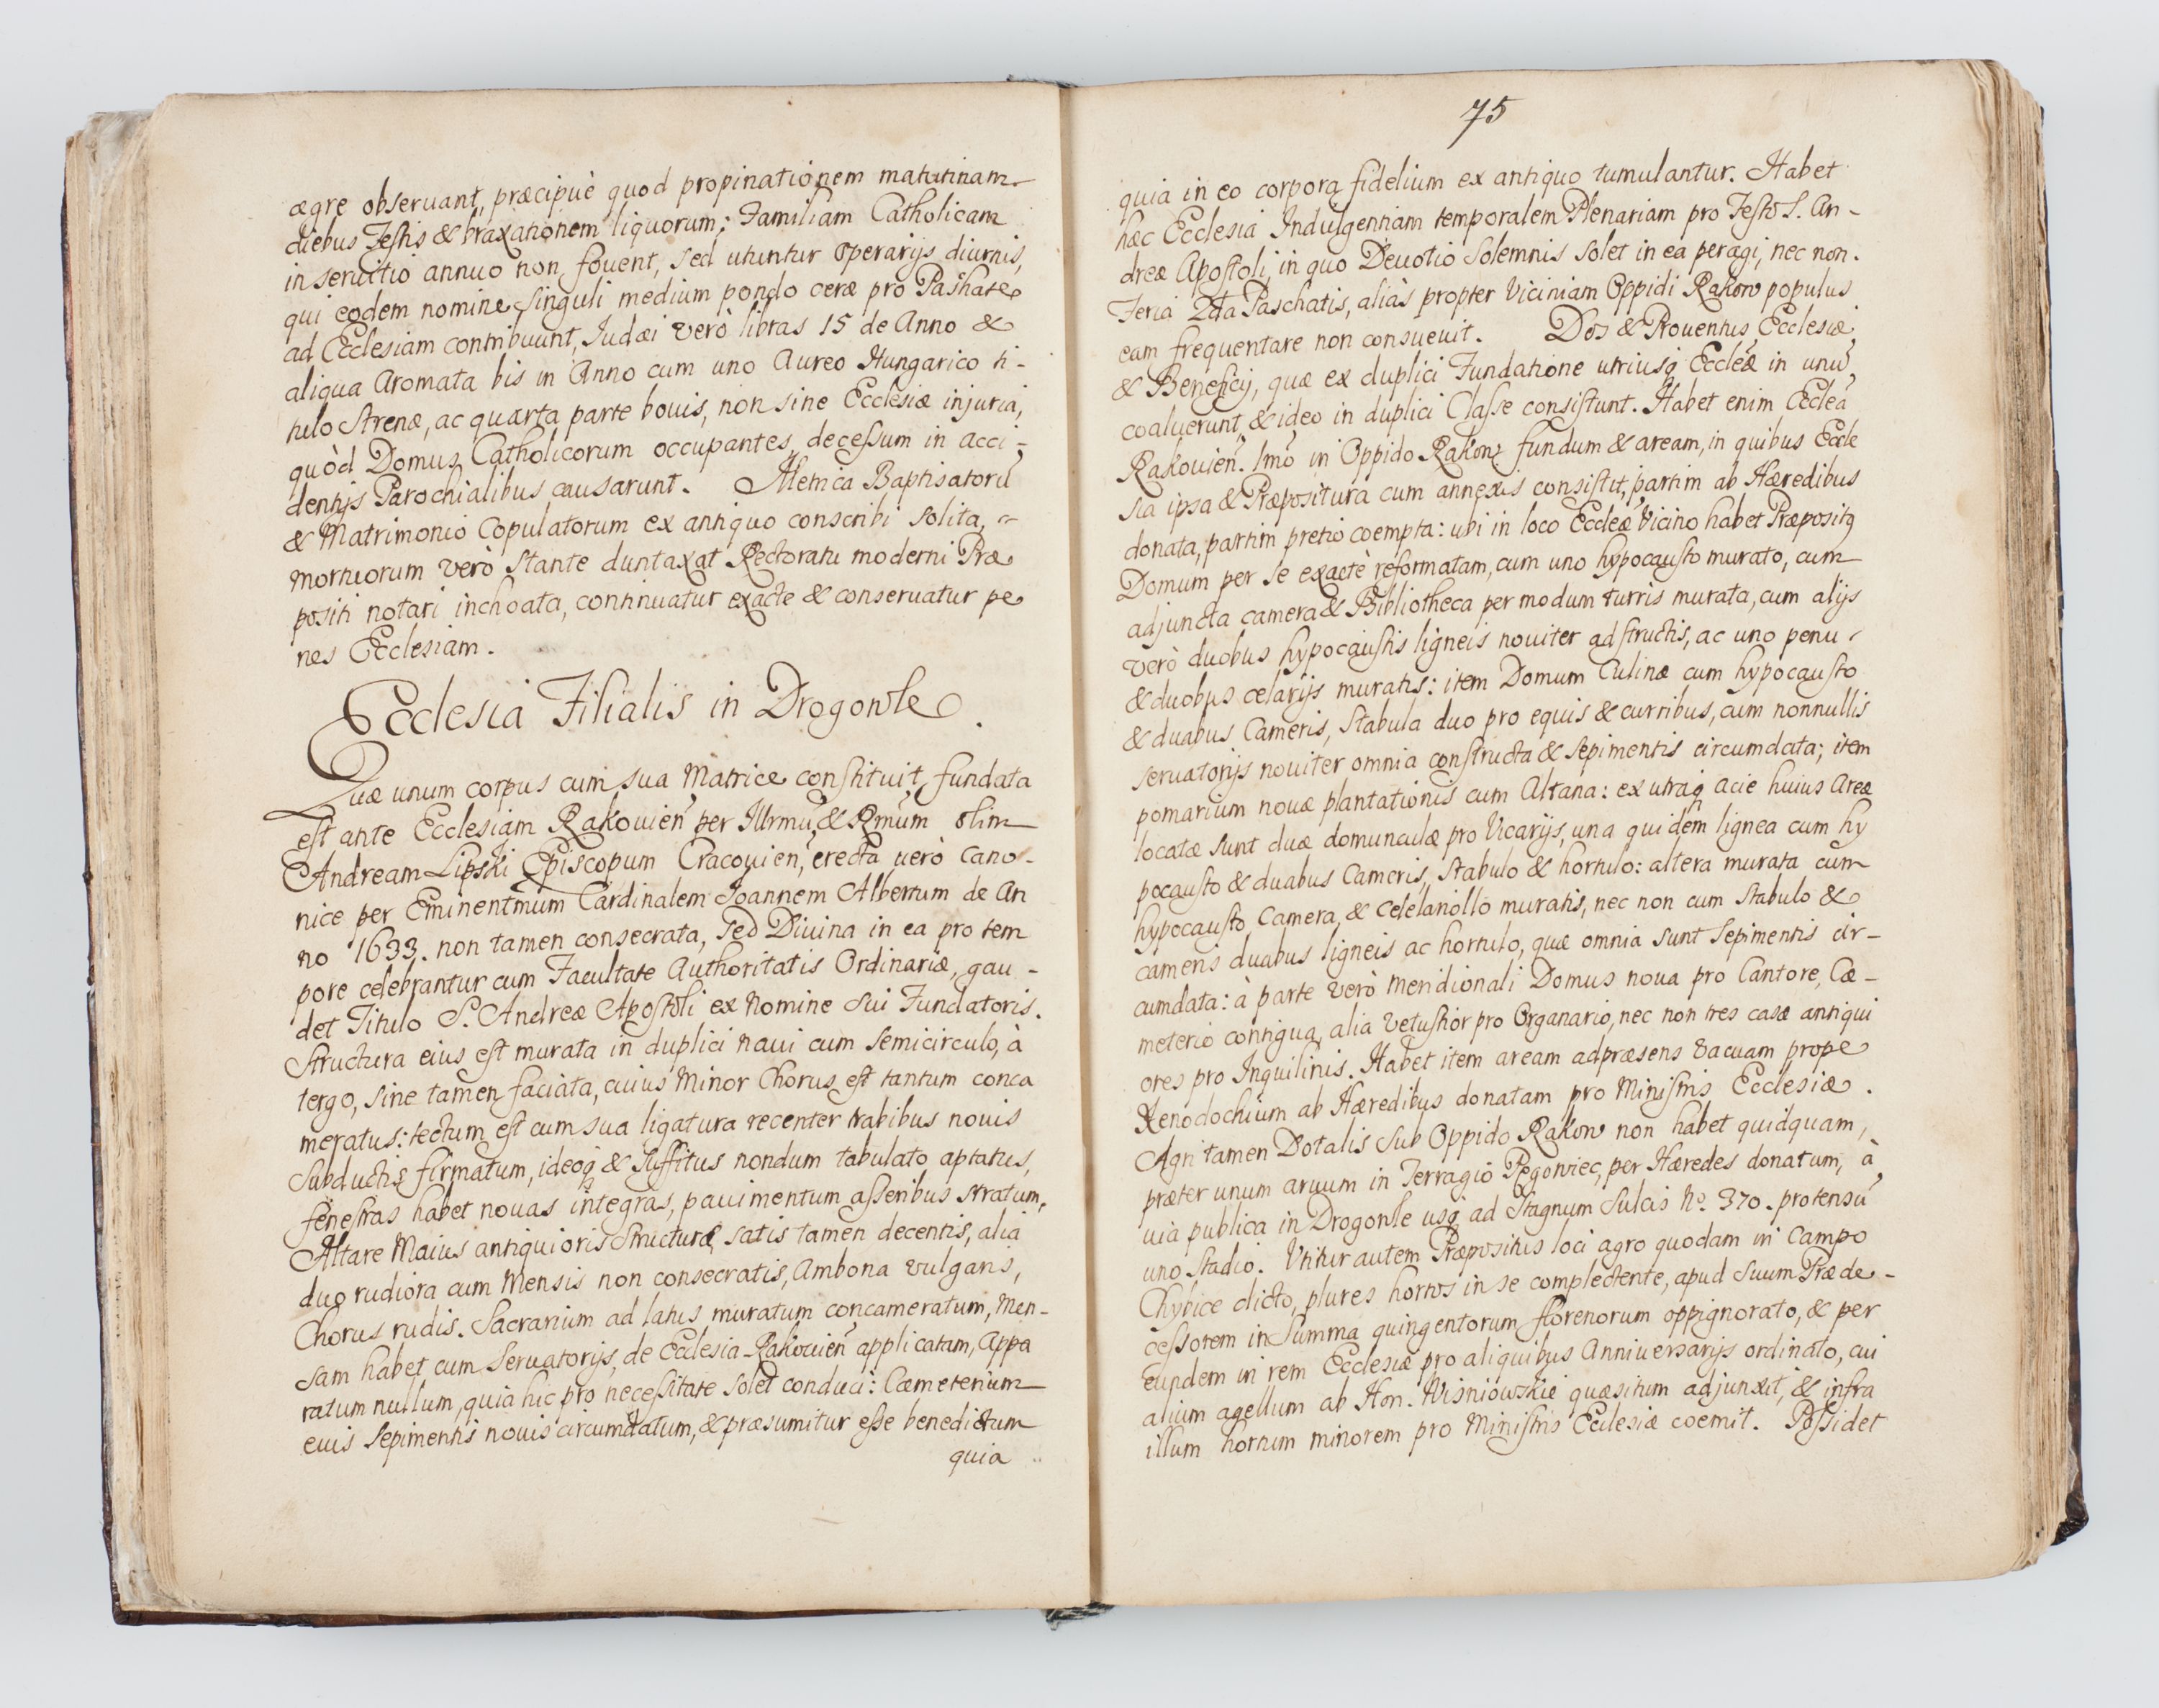 ægre obseruant, præcipuè quod propinationem matutinam
diebus Festis & braxationem liquorum; Familiam Catholicam
in seruitio annuo non fouent, sed utuntur Operarijs diurnis,
qui eodem nomine singuli medium pondo ceræ pro Paschate
ad Ecclesiam contribuunt, Iudæi verò libras 15 de Anno &
aliqua Aromata bis in Anno cum uno Aureo Hungarico ti-
tulo Strenæ, ac quarta parte bouis, non sine Ecclesiæ injuria,
quòd Domus Catholicorum occupantes, decessum in acci-
dentijs Parochialibus causarunt. Metrica Baptisatorũ
& Matrimonio Copulatorum ex antiquo conscribi solita,
mortuorum verò stante duntaxat Rectoratu moderni Præ
positi notari inchoata, continuatur exacte & conseruatur pe
nes Ecclesiam.
Ecclesia Filialis in Drogowle.
Quæ unum corpus cum sua Matrice constituit, fundata
est ante Ecclesiam Rakouien̄ per Illrmũ & Rm̃um olim
Andream Lipski Episcopum Cracouien̄, erecta uerò Cano-
nice per Eminentm̃um Cardinalem Joannem Albertum de An
no 1633. non tamen consecrata, sed Diuina in ea pro tem
pore celebrantur cum Facultate Authoritatis Ordinariæ, gau-
det Titulo S. Andreæ Apostoli ex Nomine sui Fundatoris.
Structura eius est murata in duplici naui cum semicirculo, à
tergo, sine tamen faciata, cuius Minor Chorus est tantum conca
meratus: tectum est cum sua ligatura recenter trabibus nouis
subductis firmatum, ideoq̨ & suffitus nondum tabulato aptatus,
fenestras habet nouas integras, pauimentum asseribus stratum,
Altare Maius antiquioris Structuræ satis tamen decentis, alia
duo rudiora cum Mensis non consecratis, Ambona vulgaris,
Chorus rudis. Sacrarium ad latus muratum concameratum, Men-
sam habet cum Seruatorijs, de Ecclesia Rakouien̄ applicatam, Appa
ratum nullum, quia huc pro necessitate solet conduci: Cæmeterium
euis sepimentis nouis circumdatum, & præsumitur esse benedictum
quia
75
quia in eo corpora fidelium ex antiquo tumulantur. Habet
hæc Ecclesia Indulgentiam temporalem Plenariam pro Festo S. An-
dreæ Apostoli, in quo Deuotio solemnis solet in ea peragi, nec non
Feria 2da Paschatis, aliàs propter Viciniam Oppidi Rakow populus
eam frequentare non consueuit. Dos & Prouentus Ecclesiæ
& Beneficij, quæ ex duplici Fundatione utriusq̨ Eccleæ in unũ
coaluerunt, & ideo in duplici Classe consistunt. Habet enim Ecclea
Rakouien̄. Imo in Oppido Rakow fundum & aream, in quibus Eccle
sia ipsa & Præpositura cum annexis consistit, partim ab Hæredibus
donata, partim pretio coempta: ubi in loco Eccleæ Vicino habet Præpositq̨
Domum per se exactè reformatam, cum uno hypocausto murato, cum
adjuncta camera & Bibliotheca per modum turris murata, cum alijs
verò duobus hypocaustis ligneis nouiter adstructis, ac uno penu
& duobus celarijs muratis: item Domum Culinæ cum hypocausto
& duabus Cameris, Stabula duo pro equis & curribus, cum nonnullis
seruatorijs nouiter omnia constructa & sepimentis circumdata; item
pomarium nouæ plantationis cum Altana: ex utraq̨ acie huius Areæ
locatæ sunt duæ domunculæ pro Vicarijs, una quidem lignea cum hy
pocausto & duabus Cameris, Stabulo & hortulo: altera murata cum
hypocausto, Camera, & celelariollo muratis, nec non cum Stabulo &
cameris duabus ligneis ac hortulo, quæ omnia sunt Sepimentis cir-
cumdata: à parte verò Meridionali Domus noua pro Cantore, Cæ-
meterio contigua, alia Vetustior pro Organario, nec non tres casæ antiqui
ores pro Inquilinis. Habet item aream adpræsens vacuam prope
Xenodochium ab Hæredibus donatam pro Ministris Ecclesiæ.
Agri tamen Dotalis sub Oppido Rakow non habet quidquam,
præter unum aruum in Terragio Pogowiec, per Hæredes donatum, à
uia publica in Drogowle usq̨ ad Stagnum Sulcis No. 370. protensũ
uno Stadio. Vtitur autem Præpositus loci agro quodam in Campo
Chybice dicto, plures hortos in se complectente, apud Suum Præde-
cessorem in Summa quingentorum florenorum oppignorato, & per
eundem in rem Ecclesiæ pro aliquibus Anniuersarijs ordinato, cui
alium agellum ab Hon. Wisniowskie quæsitum adjunxit, & infra
illum hortum minorem pro Ministris Ecclesiæ coemit. Possidet